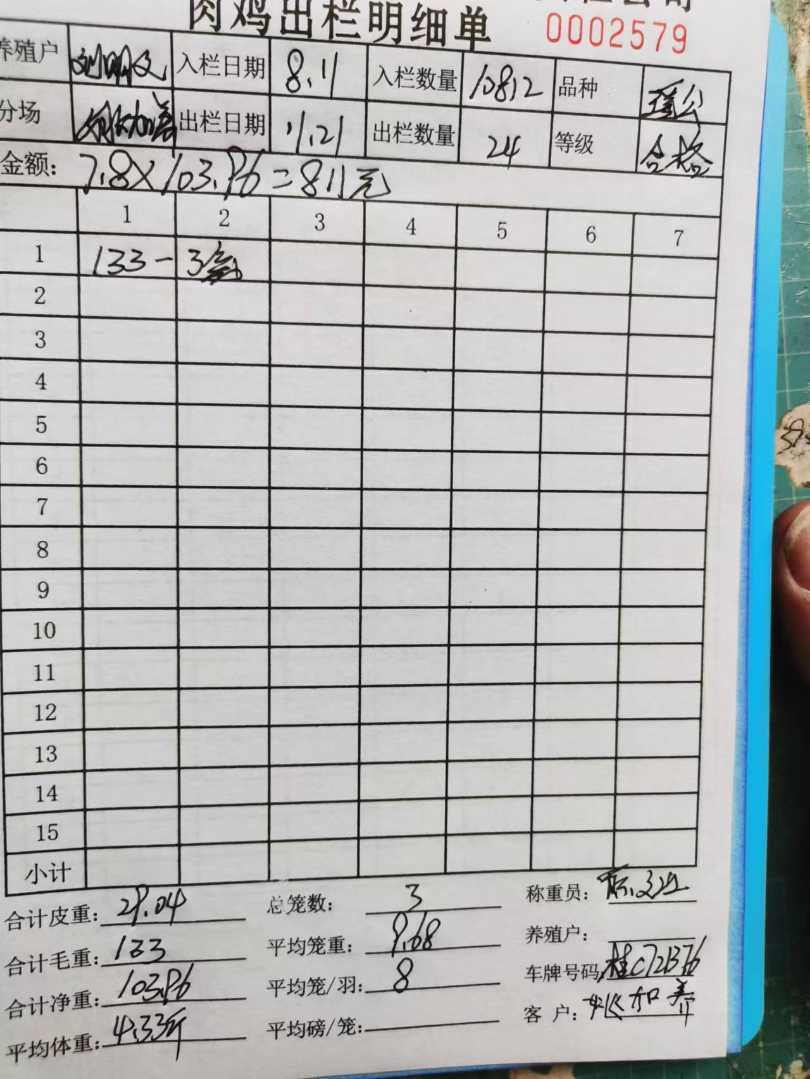 肉鸡出栏明细单 0002579
养殖户 刘明文 入栏日期 8.11 入栏数量 10812 品种 瑶公
分场 出栏日期 11.21 出栏数量 24 等级 合格
金额: 7.8×103.96=811元
1 2 3 4 5 6 7
1 133-3
2
3
4
5
6
7
8
9
10
11
12
13
14
15
小计
合计皮重: 29.04 总笼数: 3 称重员:
合计毛重: 133 平均笼重: 9.68 养殖户:
合计净重: 103.96 平均笼/羽: 8 车牌号码
平均体重: 4.33斤 平均磅/笼: 客户: